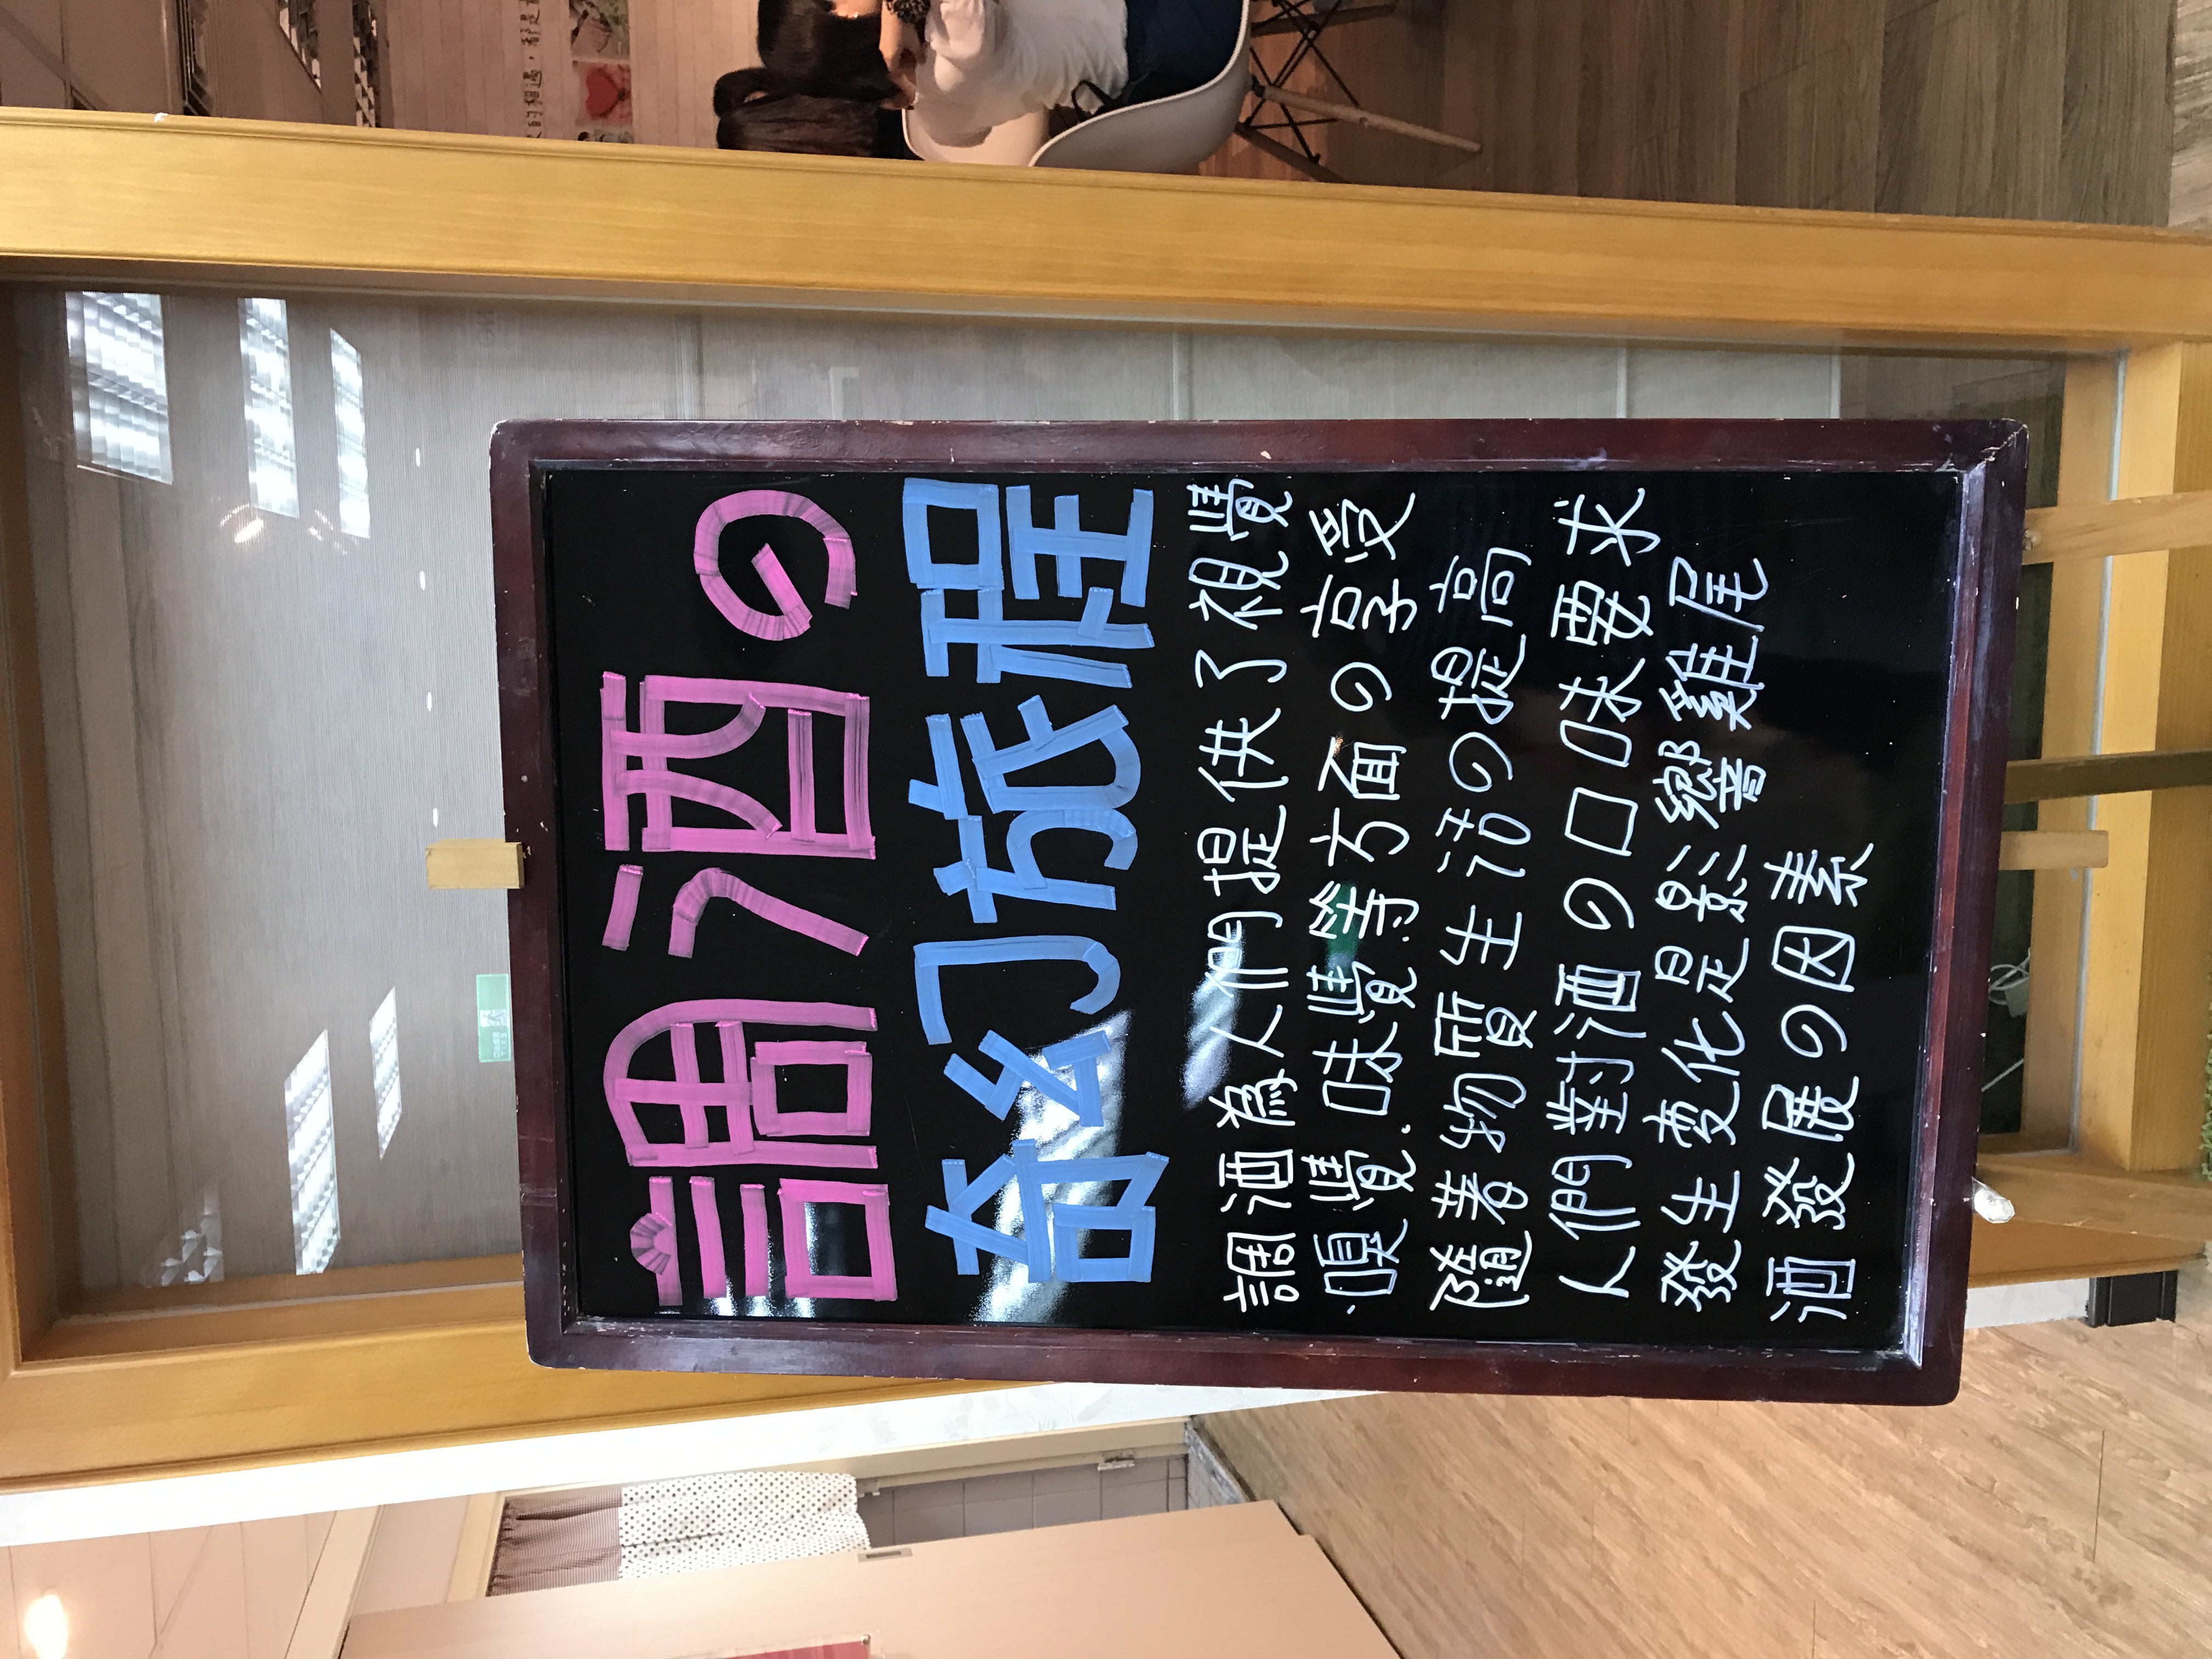 調酒の
奇幻旅程
調酒為人們提供了視覺
嗅覺、味覺等方面の享受
隨著物質生活の提高
人們對酒の口味要求
發生变化是影響雞尾
酒發展の因素